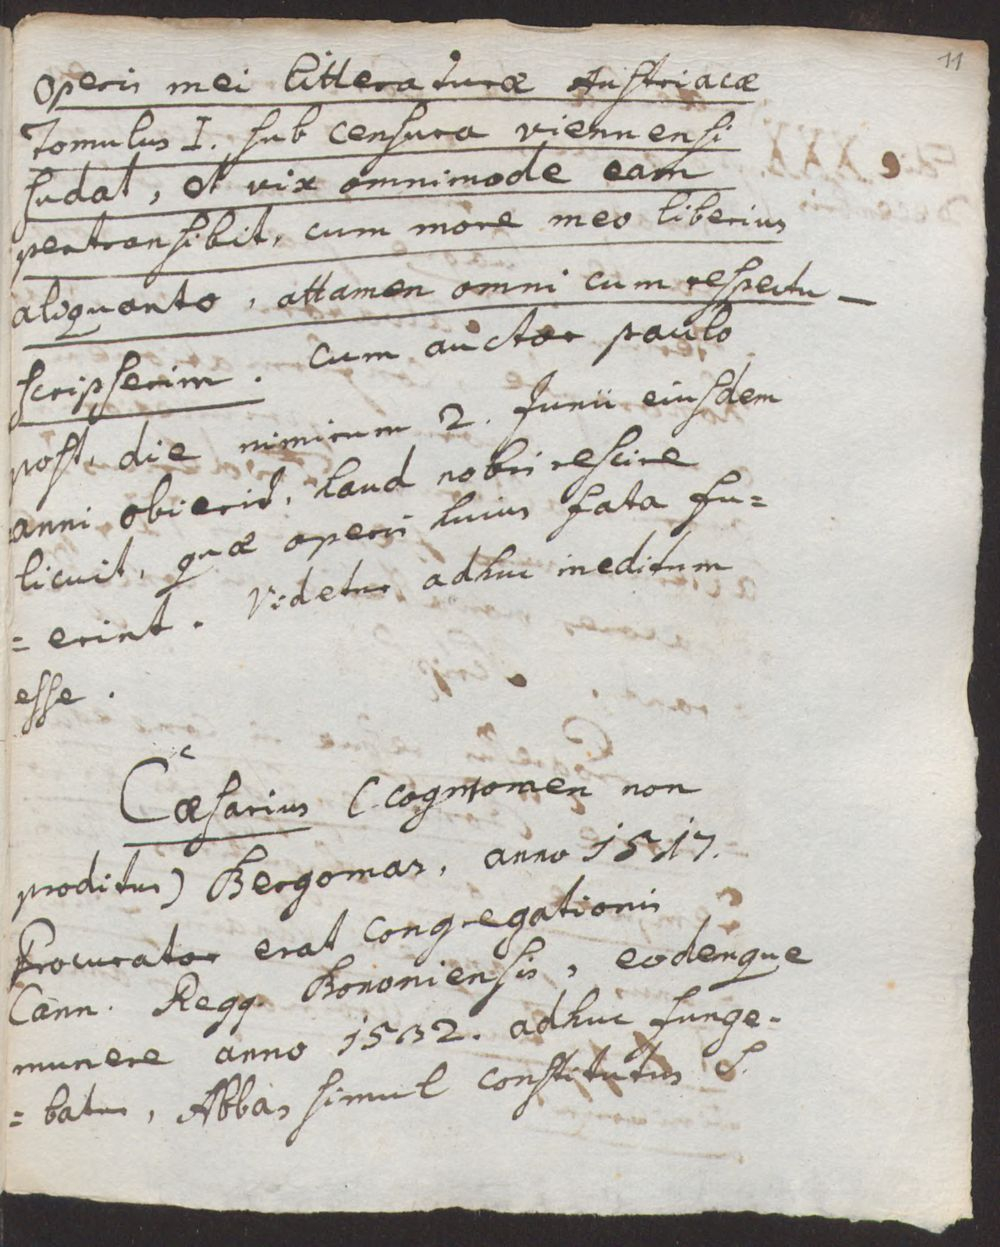 11
Operis mei litteraturæ Austriacæ
Tomulus I. sub censura viennensi
sudat, et vix omnimode eam
pertransibit, cum more meo liberius
aliquanto, attamen omni cum respectu
scripserim. Cum auctor paulo
post, die nimirum 2. Junii eiusdem
anni obierit, haud nobis rescire
licuit, quæ operis huius fata fu=
=erint. Videtur adhuc ineditum
esse.
Cæsarius (cognomen non
proditus) Bergomas, anno 1517.
Procurator erat Congregationis
Cann. Regg. Bononiensis, eodemque
munere anno 1532. adhuc funge-
=batur, Abbas simul constitutus S.